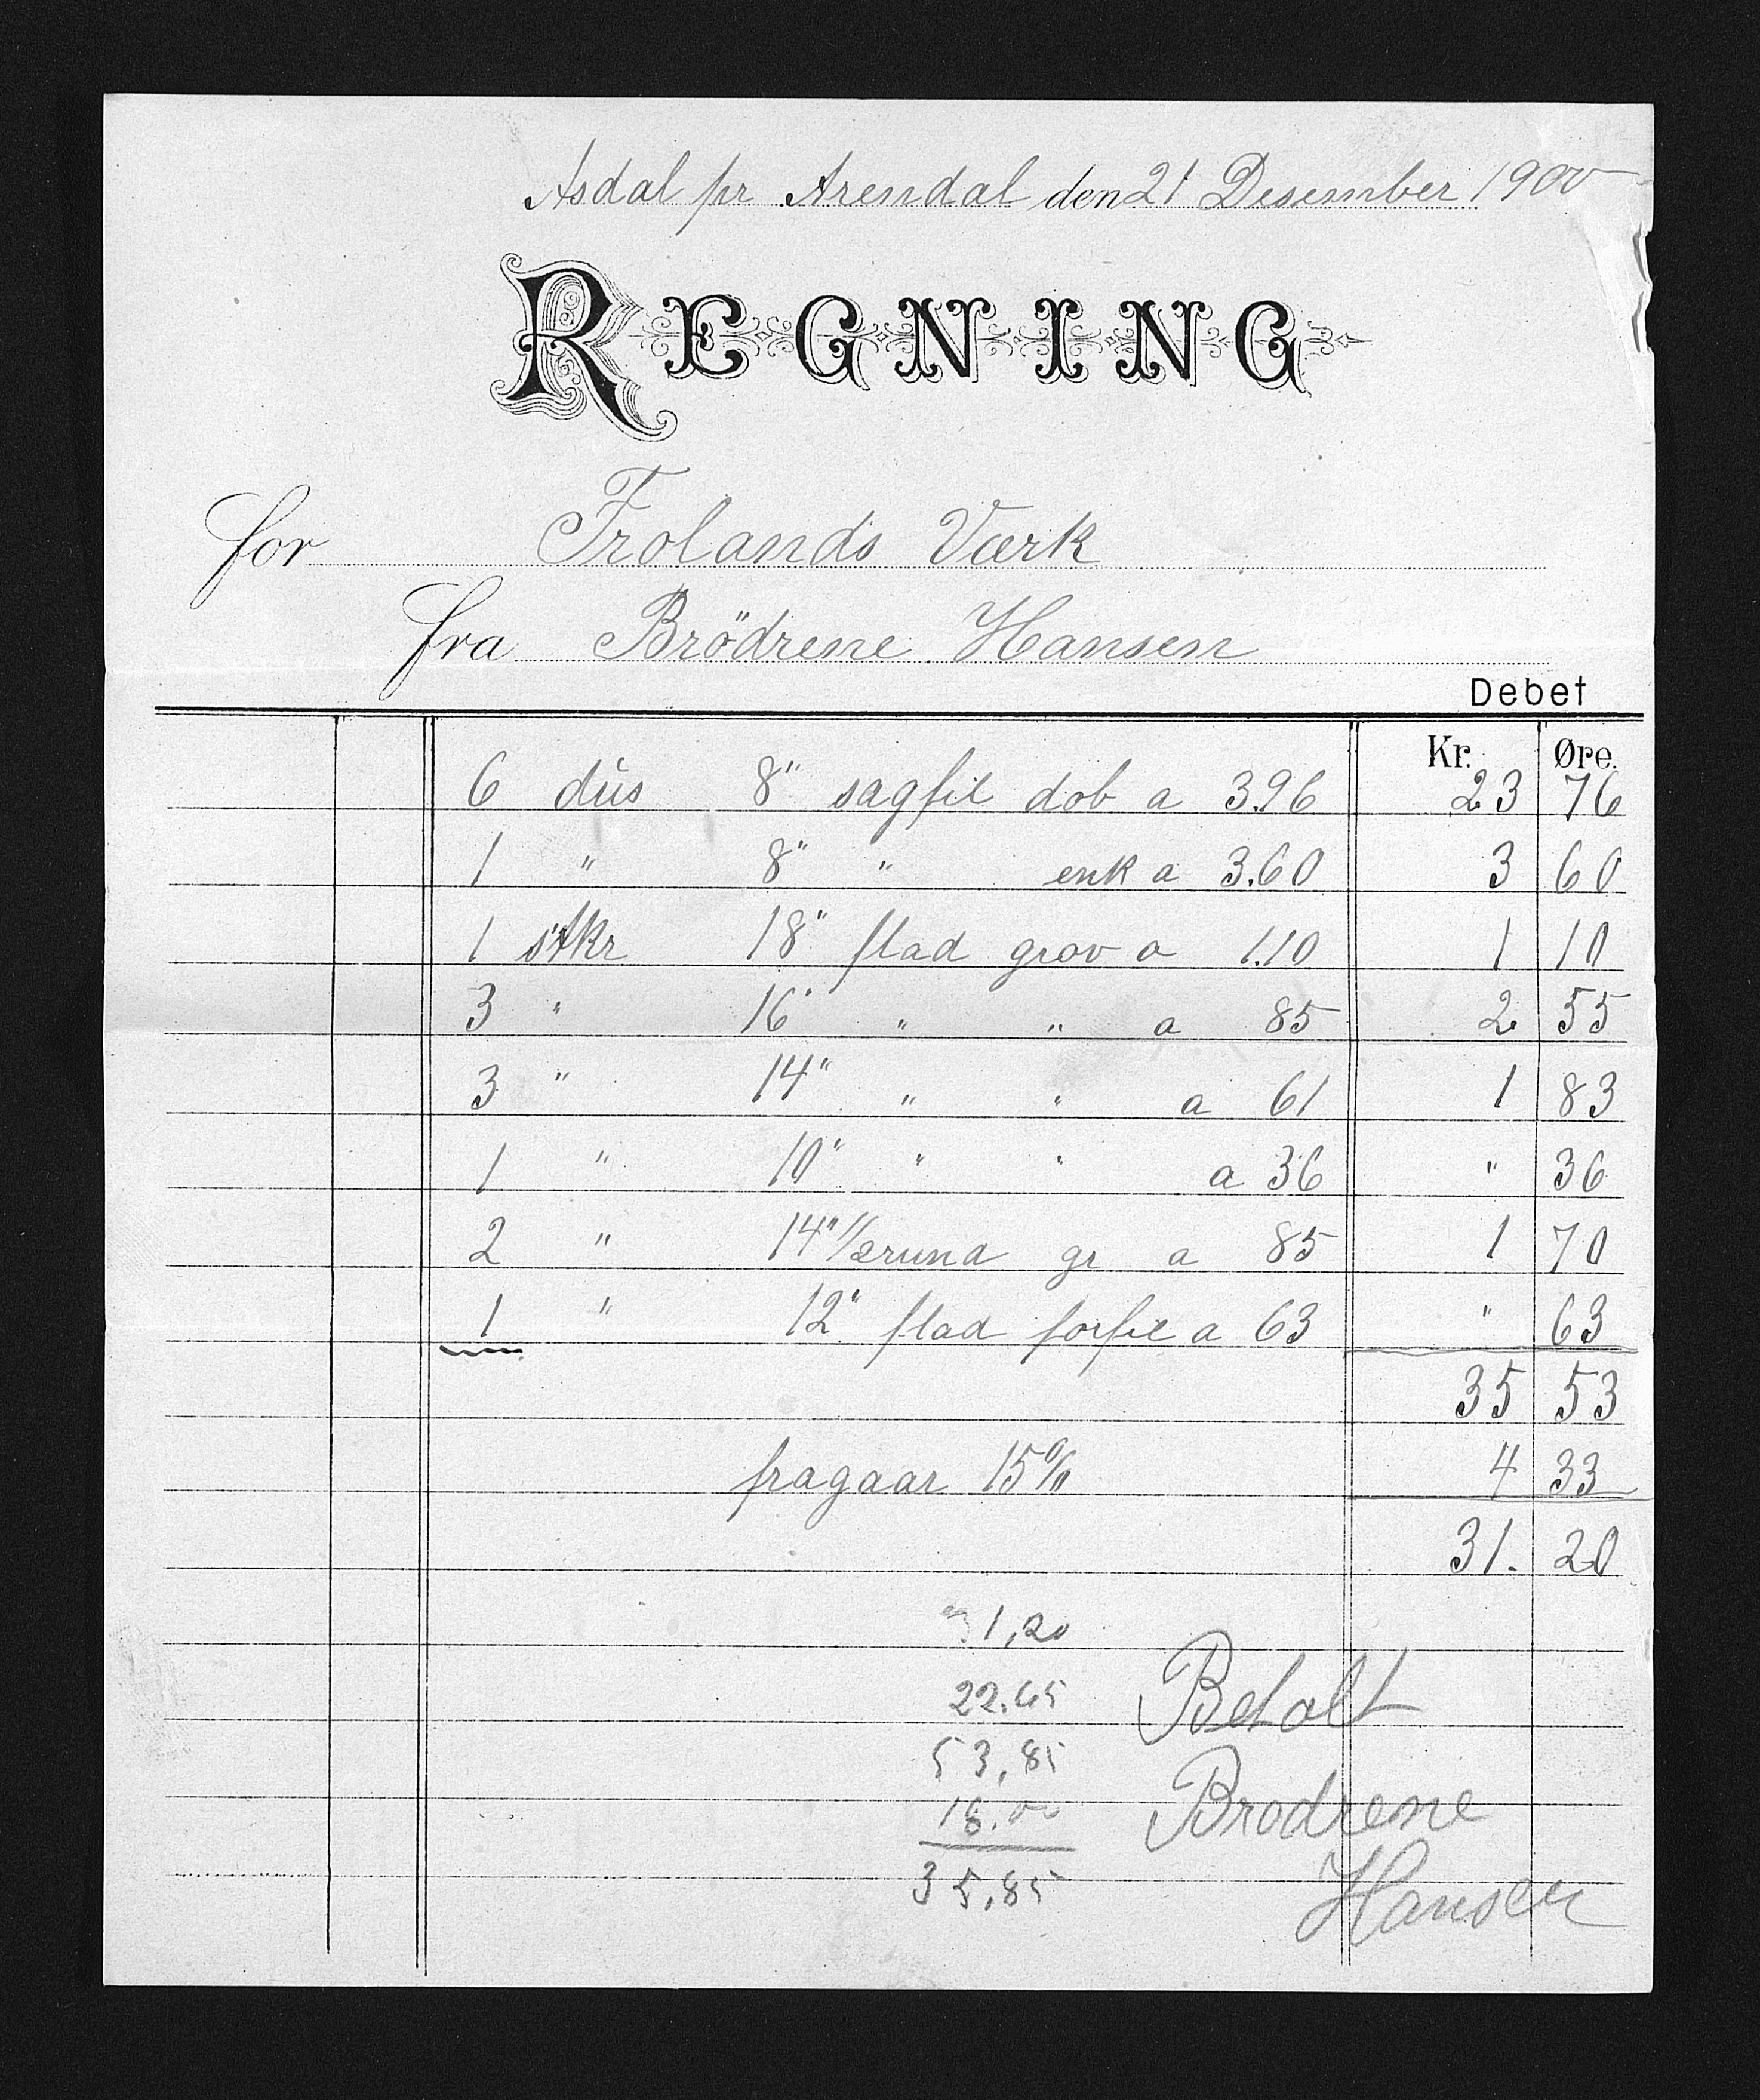 Asdal pr Arendal den 21 Desember 1900
REGNING
for Frolands Værk
fra Brödrene Hansen
Debet
Kr. Øre.
6 dùs 8" sagfil dob a 3.96 23 76
1 " 8" " enk a 3.60 3 60
1 stkr 18" flad grov a 1.10 1 10
3 " 16" " " a 85 2 55
3 " 14" " " a 61 1 83
1 " 10" " " a 36 " 36
2 " 14" 1/2rund gr a 85 1 70
1 " 12" flad forfil a 63 " 63
35 53
fragaar 15% 4 33
31. 20
31,20
22.65
53,85
18.00
35,85
Betalt
Brodrene
Hansen